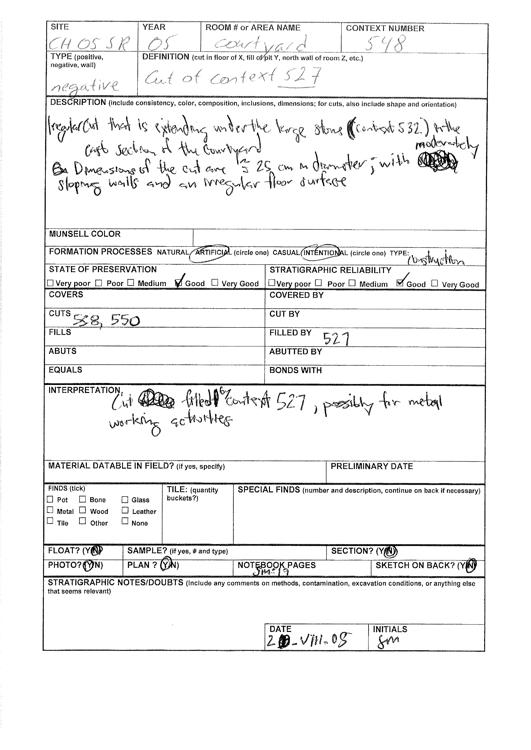 SITE YEAR ROOM # or AREA NAME CONTEXT NUMBER
CH OS SR 05 courtyard 548
TYPE (positive, negative, wall) DEFINITION (cut in floor of X, fill of pit Y, north wall of room Z, etc.)
negative Cut of context 527
DESCRIPTION (include consistency, color, composition, inclusions, dimensions; for cuts, also include shape and orientation)
Iregular cut that is extending under the large stone (context 532) in the
east section of the courtyard
Dimensions of the cut are 25 cm in diameter; with moderately
sloping walls and an irregular floor surface
MUNSELL COLOR
FORMATION PROCESSES NATURAL/ARTIFICIAL (circle one) CASUAL/INTENTIONAL (circle one) TYPE: construction
STATE OF PRESERVATION STRATIGRAPHIC RELIABILITY
☐ Very poor ☐ Poor ☐ Medium ☑ Good ☐ Very Good ☐ Very poor ☐ Poor ☐ Medium ☑ Good ☐ Very Good
COVERS COVERED BY
CUTS 538, 550 CUT BY
FILLS FILLED BY 527
ABUTS ABUTTED BY
EQUALS BONDS WITH
INTERPRETATION
Cut filled by context 527, possibly for metal
working activities
MATERIAL DATABLE IN FIELD? (if yes, specify) PRELIMINARY DATE
FINDS (tick) TILE: (quantity buckets?) SPECIAL FINDS (number and description, continue on back if necessary)
☐ Pot ☐ Bone ☐ Glass
☐ Metal ☐ Wood ☐ Leather
☐ Tile ☐ Other ☐ None
FLOAT? (Y/N) SAMPLE? (if yes, # and type) SECTION? (Y/N)
PHOTO? (Y/N) PLAN ? (Y/N) NOTEBOOK PAGES JM-19 SKETCH ON BACK? (Y/N)
STRATIGRAPHIC NOTES/DOUBTS (Include any comments on methods, contamination, excavation conditions, or anything else
that seems relevant)
DATE INITIALS
VIII-05 JM